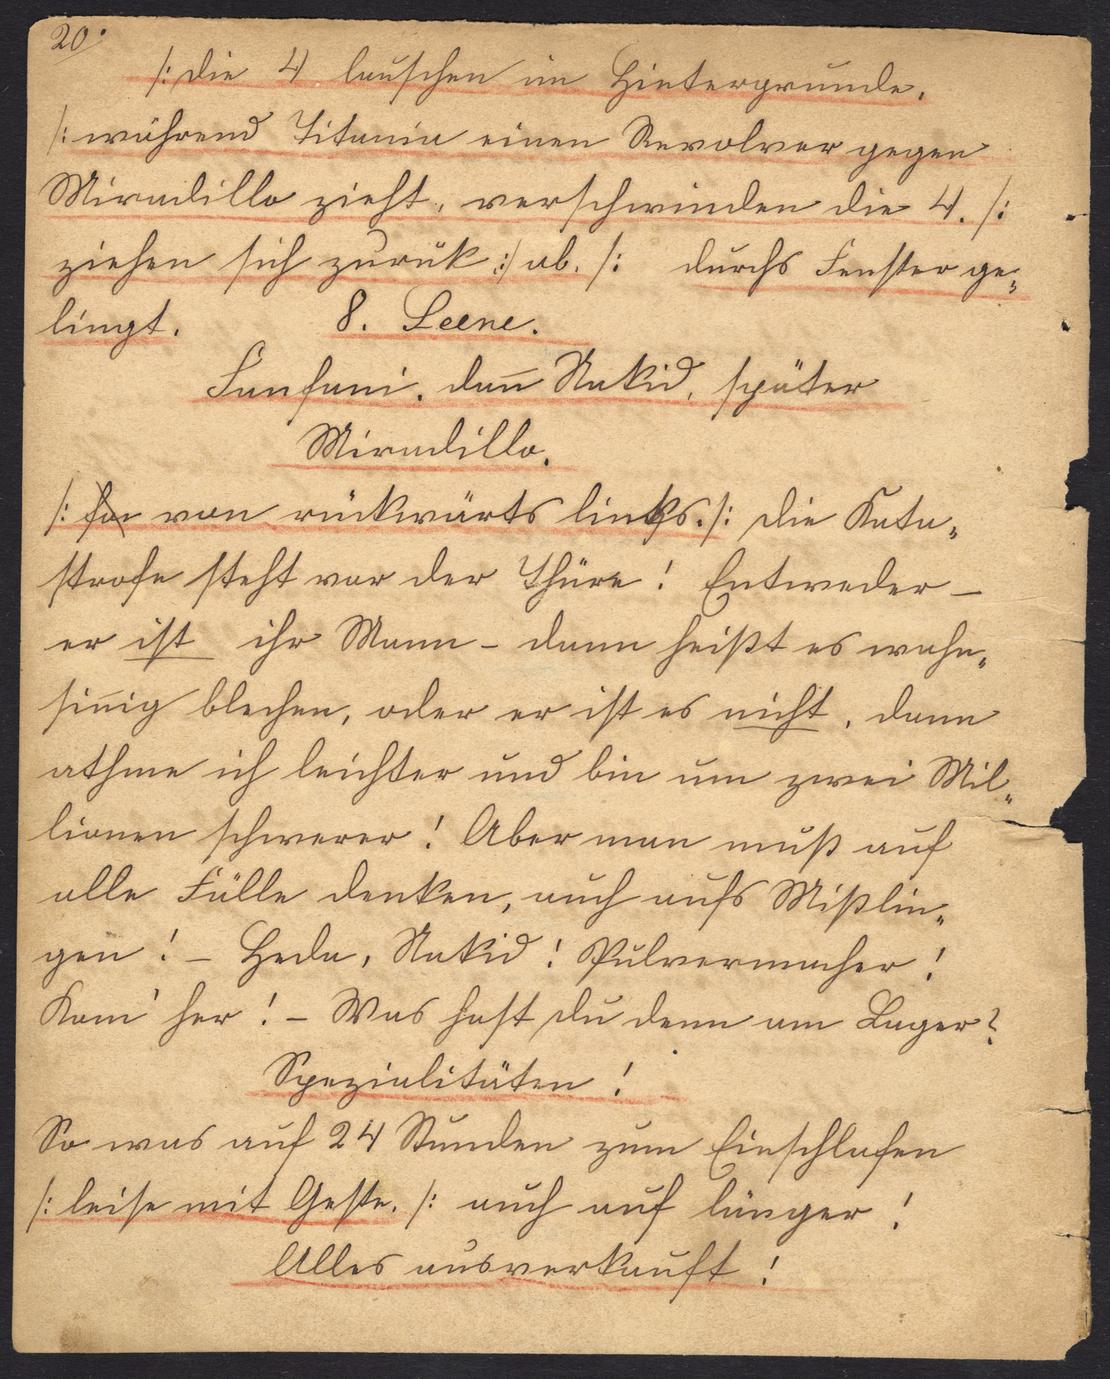 20.
/: die 4 lauschen im Hintergrunde.
/: während Titania einen Revolver gegen
Miradillo zieht, verschwinden die 4. /:
ziehen sich zurük :/ ab. /: durchs Fenster ge„
lingt. 8. Scene.
Fanfani, dan̄ Nakid, später
Miradillo.
/: von rückwärts links. /: Die Kata„
strofe steht vor der Thüre! Entweder –
er ist ihr Mann – dann heißt es wahn„
sin̄ig blechen, oder er ist es nicht, dann
athme ich leichter und bin um zwei Mil„
lionen schwerer! Aber man muß auf
alle Fälle denken, auch aufs Mißlin„
gen! – Heda, Nakid! Pulvermacher!
Kom̄' her! – Was hast du denn am Lager?
Spezialitäten!
So was auf 24 Stunden zum Einschlafen
/: leise mit Geste. /: auch auf länger!
Alles ausverkauft!